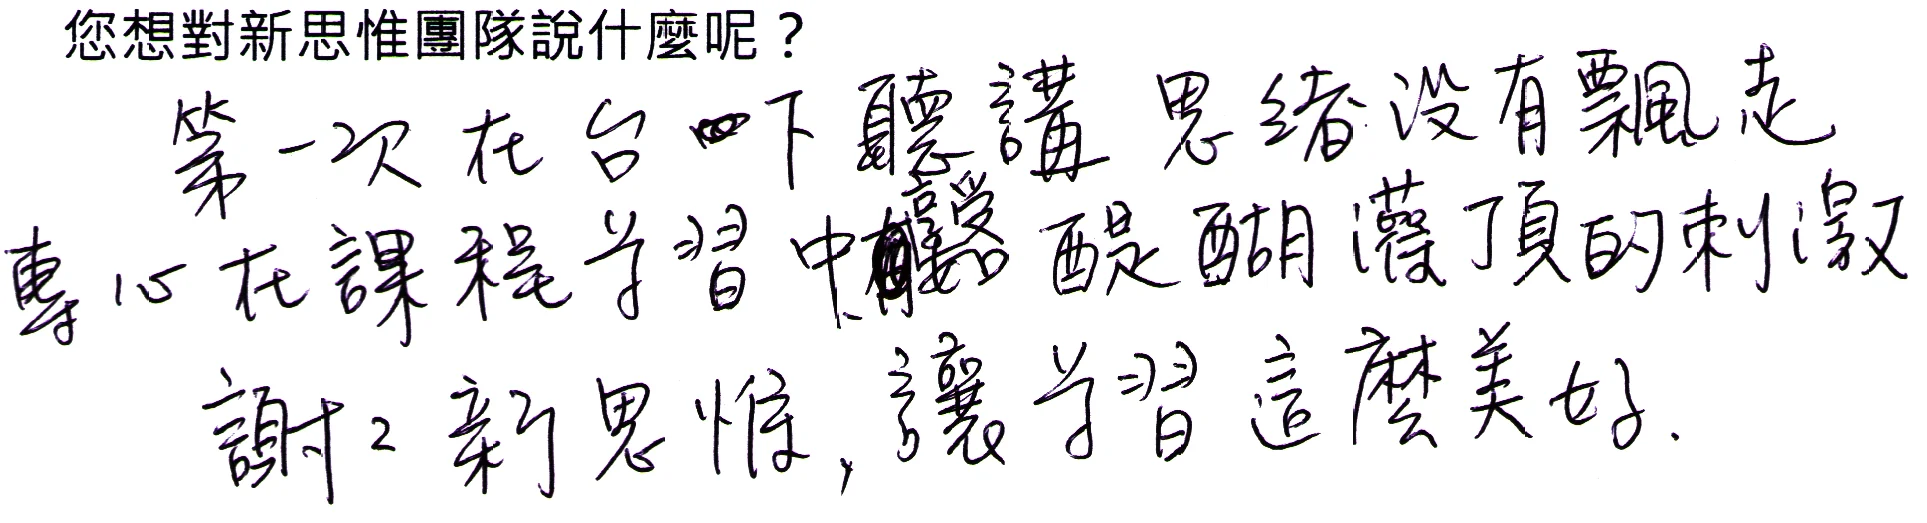 您想對新思惟團隊說什麼呢？
第一次在台下聽講 思緒沒有飄走
專心在課程学習中享受醍醐灌頂的刺激
謝々新思惟,讓学習這麼美好.